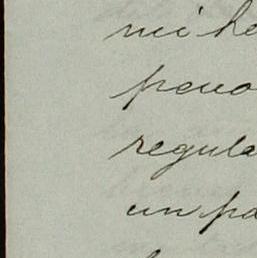 mi he
peno
regula
un pa